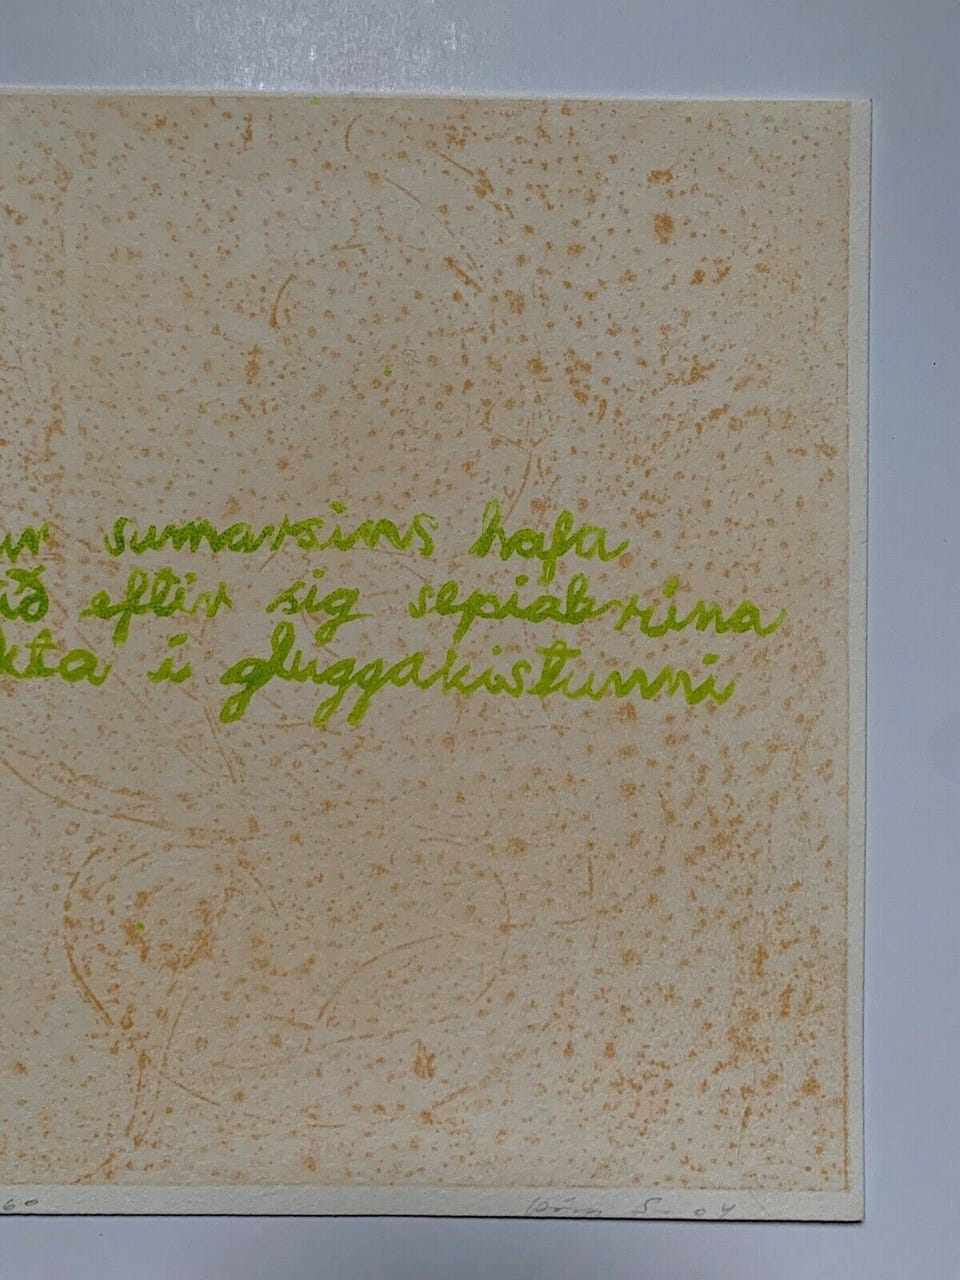 ur sumarsins hafa
ið eftir sig sepiabrúna
kta í gluggakistunni
60 04